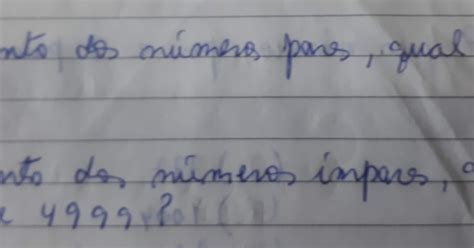 nto dos números pares, qual
nto dos números impares,
4999?